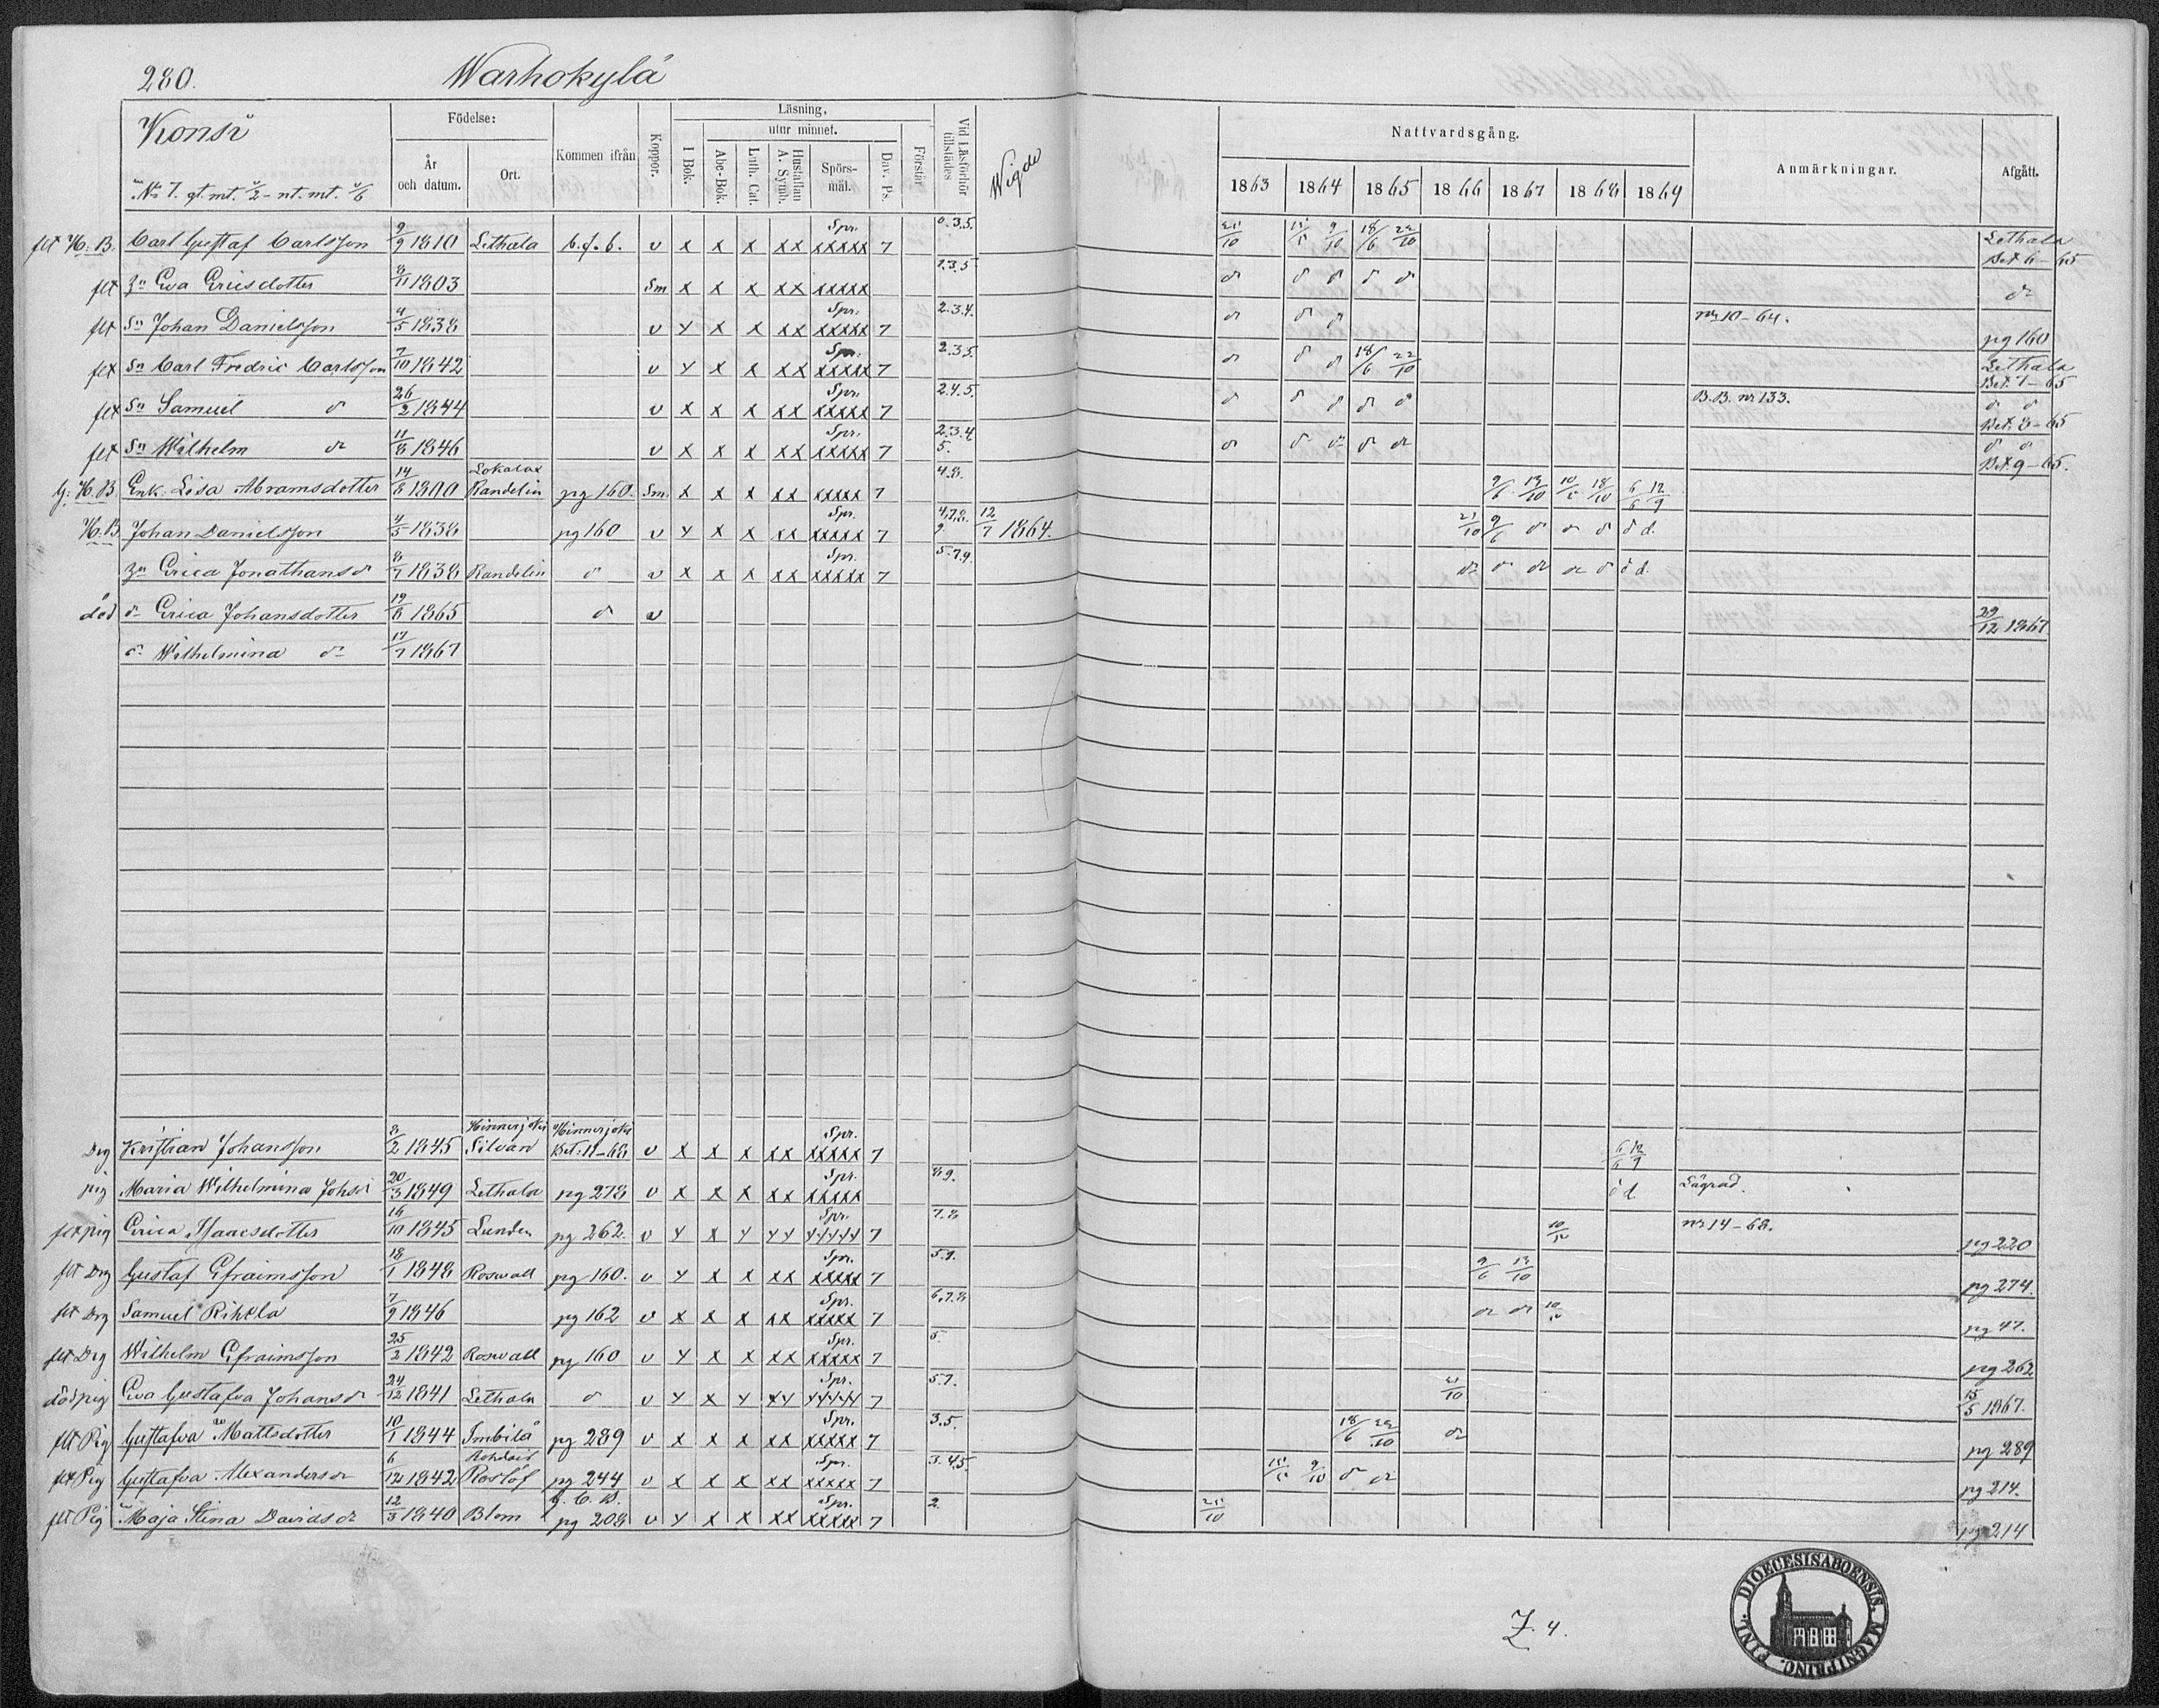 280. Warhokylä
Konsi
Födelse: Kommen ifrån Koppor. Läsning, Vid Läsförhör tillstädes Wigde Nattvardsgång. Anmärkningar. Afgått.
År och datum. Ort. I Bok. utur minnet. Förstår
Abc-Bok. Luth. Cat. Hustaflan A. Symb. Spörs-mål. Dav. Ps.
1863 1864 1865 1866 1867 1868 1869
flt H:B. Carl Gustaf Carlsson 9/9 1810 Lethala b.f.b. v x x x xx Spr. xxxxx 7 0.3.5. 25/10 9/10 18/6 22/10 Lethala Bet 6-65
flt Eva Ericsdotter 8/11 1803 Sm x x x xx xxxxx 2.3.5
flt Sn Johan Danielsson 4/5 1838 v y x x xx Spr. xxxxx 7 2.3.4. nr 10-64. pg 160
flt Sn Carl Fredric Carlsson 7/10 1842 v y x x xx Spr. xxxxx 7 2.3.5. 18/6 22/10 Lethala Bet 7-65
flt Sn Samuel d 26/2 1844 v x x x xx Spr. xxxxx 7 2.4.5. B.B. nr 133. d d Bet. 8-65
flt Sn Wilhelm d 11/8 1846 v x x x xx Spr. xxxxx 7 2.3.4. 5. d d Bet 9-65.
H.B Enk. Lisa Abramsdotter 14/8 1800 Lokalax Randelin pg 160. Sm. x x x xx xxxxx 7 4.8. 9/6 13/10 18/10 6/6 12/9
H:B Johan Danielsson 4/5 1838 pg 160 v y x x xx Spr. xxxxx 7 4.7.8. 9 12/7 1864. 21/10 9/6 d d d d d.
Erica Jonathansd 8/7 1838 Randelin d v x x x xx Spr. xxxxx 7 5.7.9.
död d Erica Johansdotter 19/8 1865 d v 29/12 1867
d Wilhelmina d 17/7 1867
Drg Kristian Johansson 8/2 1845 Hinnerjoki Silvan Hinnerjoki Bet: 11-68 v x x x xx Spr. xxxxx 7 6/6 12/9
pig Maria Wilhelmina Johsd 20/3 1849 Lethala pg 278 v x x x xx Spr. xxxxx 8.9. d d. Lägrad.
flt pig Erica Isaacsdotter 16/10 1845 Lunden pg 262. v y x y yy Spr. yyyyy 7 7.8 nr 14-68. pg 220
flt Drg Gustaf Efraimsson 18/1 1848 Roswall pg 160. v y x x xx Spr. xxxxx 7 5.7. 9/6 13/10 pg 274.
flt Drg Samuel Rihkla 7/9 1846 pg 162 v x x x xx Spr. xxxxx 7 6.7.8 pg 47.
flt Drg Wilhelm Efraimsson 25/2 1842 Roswall pg 160 v y x x xx Spr. xxxxx 7 5. pg 262
död pig Eva Gustafva Johansd 24/12 1841 Lethala d v y x y yy Spr. yyyyy 7 5.7. 21/10 15/5 1867.
flt Pig Gustafva Mattsdotter 10/1 1844 Imbilä pg 289 v x x x xx Spr. xxxxx 7 3.5. 18/6 22/10 pg 289
flt Pig Gustafva Alexandersd 6/12 1842 Roslöf pg 244 v x x x xx Spr. xxxxx 7 3.4.5. 9/10 pg 214.
flt Pig Maja Stina Davidsd 12/3 1840 Blom pg 208 v y x x xx Spr. xxxxx 7 2. 25/10 pg 214
Z. 4.
DIOECESIS ABOENSIS. MAGNI PRINC. FINL.